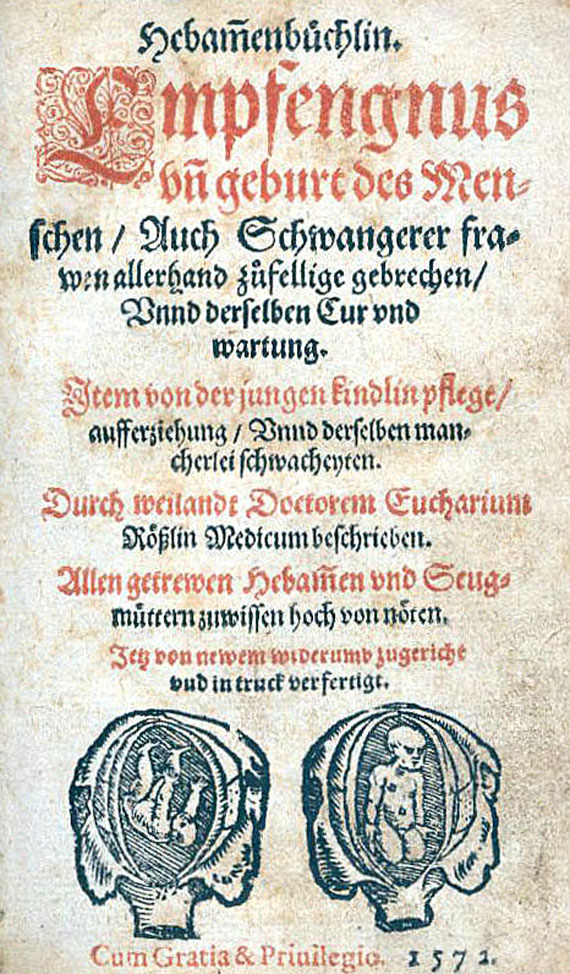 Hebam̄enbuͤchlin.
Empfengnus
vn̄ geburt des Men-
schen / Auch Schwangerer fra-
wen allerhand zůfellige gebrechen /
Vnnd derselben Cur vnd
wartung.
Item von der jungen kindlin pflege /
aufferziehung / Vnnd derselben man-
cherlei schwacheyten.
Durch weilandt Doctorem Eucharium
Roͤßlin Medicum beschrieben.
Allen getrewen Hebam̄en vnd Seug-
muͤttern zuwissen hoch von noͤten.
Jetz von newem widerumb zugericht
vnd in truck verfertigt.
Cum Gratia & Priuilegio. 1572.